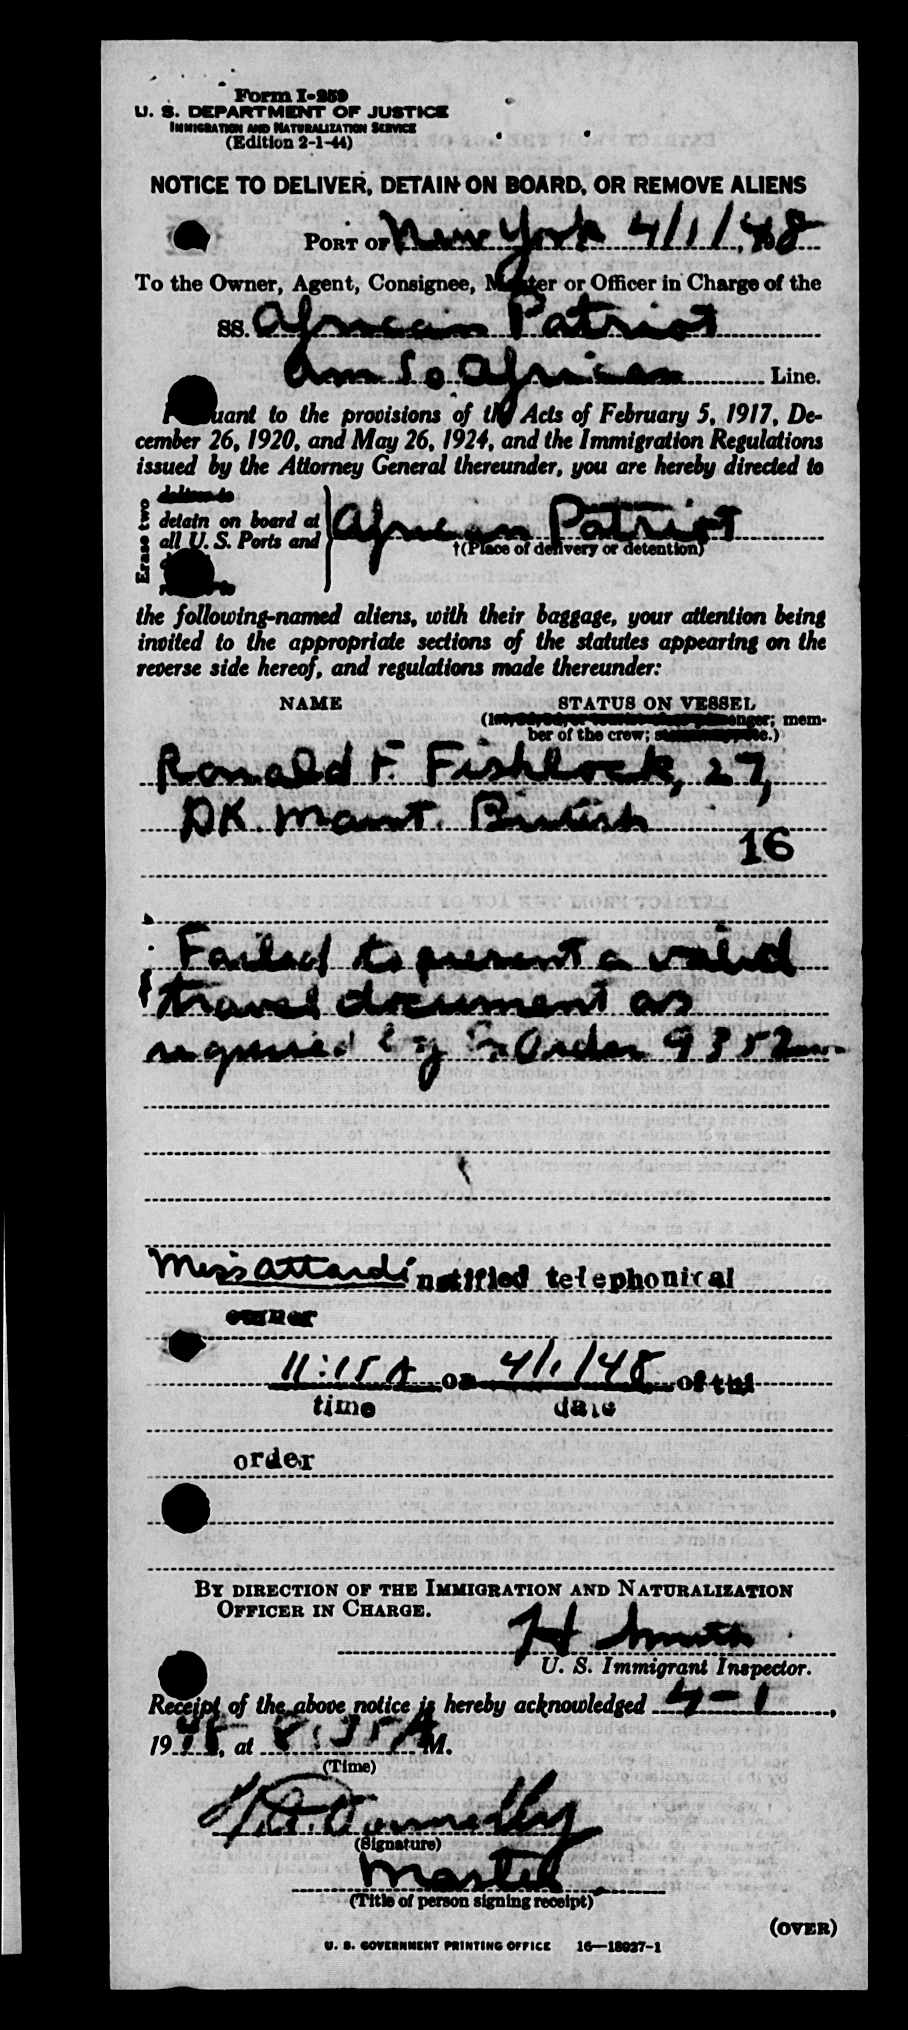 Form I-259
U. S. DEPARTMENT OF JUSTICE
IMMIGRATION AND NATURALIZATION SERVICE
(Edition 2-1-44)
NOTICE TO DELIVER, DETAIN ON BOARD, OR REMOVE ALIENS
PORT OF New York 4/1/, 48
To the Owner, Agent, Consignee, Master or Officer in Charge of the
SS. African Patriot
Am So African Line.
Pursuant to the provisions of the Acts of February 5, 1917, De-
cember 26, 1920, and May 26, 1924, and the Immigration Regulations
issued by the Attorney General thereunder, you are hereby directed to
Erase two
deliver to
detain on board at
all U. S. Ports and
African Patriot
†(Place of delivery or detention)
the following-named aliens, with their baggage, your attention being
invited to the appropriate sections of the statutes appearing on the
reverse side hereof, and regulations made thereunder:
NAME STATUS ON VESSEL
mem-
ber of the crew;
Ronald F. Fishlock, 27,
DK Maint. British
16
Failed to present a valid
travel document as
required by Ex Order 9352
Miss Attardi notified telephonical
owner
11:15 A on 4/1/48 of thi
time date
order
BY DIRECTION OF THE IMMIGRATION AND NATURALIZATION
OFFICER IN CHARGE.
H Smith
U. S. Immigrant Inspector.
Receipt of the above notice is hereby acknowledged 4-1,
1948, at 8:35 A M.
(Time)
Donnelly
(Signature)
Master
(Title of person signing receipt)
(OVER)
U. S. GOVERNMENT PRINTING OFFICE 16—18037-1